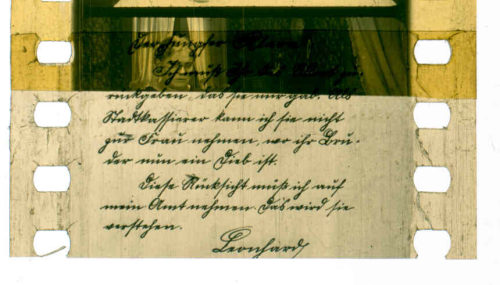 Der Jungfer Klara!
Ich muß Ihr das Wort zu-
rückgeben, das sie mir gab. Als
Stadtkassierer kann ich sie nicht
zur Frau nehmen, wo ihr Bru-
der nun ein Dieb ist.
Diese Rücksicht muß ich auf
mein Amt nehmen. Das wird sie
verstehen.
Leonhard